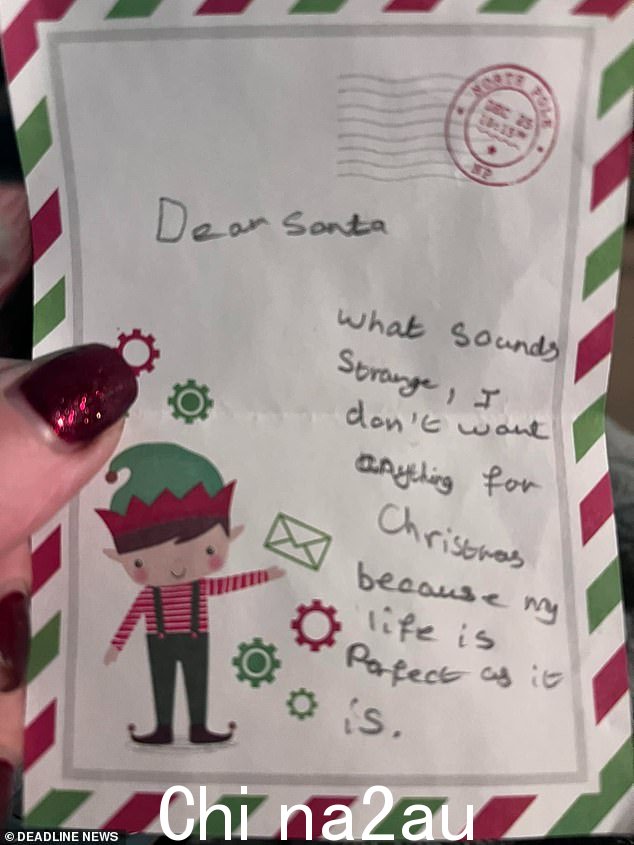 NORTH POLE
DEC 25
NP
Dear Santa
What sounds
Strange, I
don't want
anything for
Christmas
because my
life is
Perfect as it
is.
Chi na2au
© DEADLINE NEWS